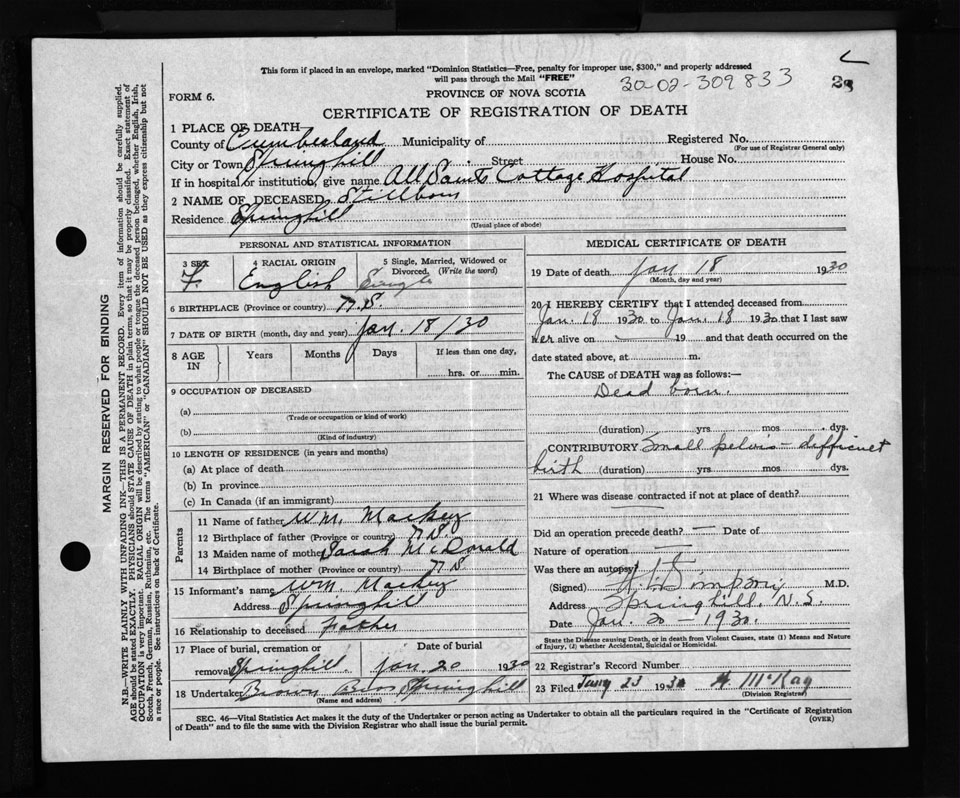 This form if placed in an envelope, marked "Dominion Statistics—Free, penalty for improper use, $300," and properly addressed
will pass through the Mail "FREE"
30-02-309833
FORM 6.
PROVINCE OF NOVA SCOTIA
CERTIFICATE OF REGISTRATION OF DEATH
1 PLACE OF DEATH
County of Cumberland Municipality of Registered No.
(For use of Registrar General only)
City or Town Springhill Street House No.
If in hospital or institution, give name All Saints Cottage Hospital
2 NAME OF DECEASED Stillborn
Residence Springhill
(Usual place of abode)
PERSONAL AND STATISTICAL INFORMATION
3 SEX 4 RACIAL ORIGIN 5 Single, Married, Widowed or Divorced. (Write the word)
F. English Single
6 BIRTHPLACE (Province or country) N.S.
7 DATE OF BIRTH (month, day and year) Jan. 18/30
8 AGE IN Years Months Days If less than one day,
hrs. or min.
9 OCCUPATION OF DECEASED
(a)
(Trade or occupation or kind of work)
(b)
(Kind of industry)
10 LENGTH OF RESIDENCE (in years and months)
(a) At place of death
(b) In province
(c) In Canada (if an immigrant)
Parents
11 Name of father Wm. Mackey
12 Birthplace of father (Province or country) N.S.
13 Maiden name of mother Sarah McDonald
14 Birthplace of mother (Province or country) N S
15 Informant's name Wm. Mackey
Address Springhill
16 Relationship to deceased Father
17 Place of burial, cremation or Date of burial
removal Springhill Jan 20 1930
18 Undertaker Brown Bros Springhill
(Name and address)
MEDICAL CERTIFICATE OF DEATH
19 Date of death Jan 18 1930
(Month, day and year)
20 I HEREBY CERTIFY that I attended deceased from
Jan. 18 1930 to Jan. 18 1930 that I last saw
her alive on 19 and that death occurred on the
date stated above, at m.
The CAUSE of DEATH was as follows:—
Dead born.
(duration) yrs mos dys.
CONTRIBUTORY Small pelvis - difficult
birth (duration) yrs mos dys.
21 Where was disease contracted if not at place of death?
Did an operation precede death? — Date of
Nature of operation —
Was there an autopsy?
(Signed) Simpson M.D.
Address Springhill, N.S.
Date Jan. 20 - 1930.
State the Disease causing Death, or in death from Violent Causes, state (1) Means and Nature
of Injury, (2) whether Accidental, Suicidal or Homicidal.
22 Registrar's Record Number
23 Filed Jany 23 1930 McKay
(Division Registrar)
SEC. 46—Vital Statistics Act makes it the duty of the Undertaker or person acting as Undertaker to obtain all the particulars required in the "Certificate of Registration
of Death" and to file the same with the Division Registrar who shall issue the burial permit.
(OVER)
MARGIN RESERVED FOR BINDING
N.B.—WRITE PLAINLY WITH UNFADING INK—THIS IS A PERMANENT RECORD. Every item of information should be carefully supplied.
AGE should be stated EXACTLY. PHYSICIANS should STATE CAUSE OF DEATH in plain terms, so that it may be properly classified. Exact statement of
OCCUPATION is very important. RACIAL ORIGIN will be described by stating to what people or tongue the deceased person belonged, whether English, Irish,
Scotch, French, German, Russian, Ruthenian, etc. The terms "AMERICAN" or "CANADIAN" SHOULD NOT BE USED as they express citizenship but not
a race or people. See instructions on back of Certificate.